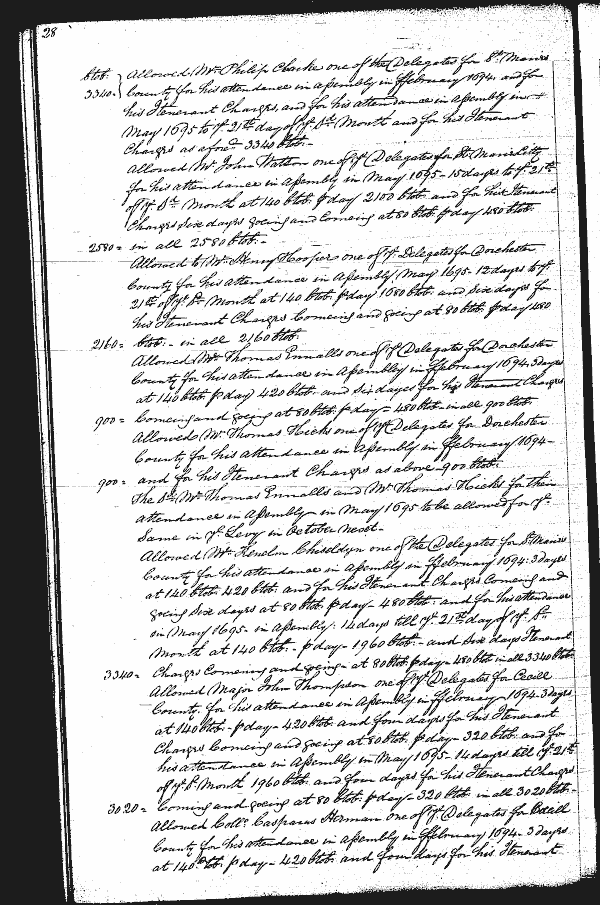 28
lbtob. Allowed Mr. Philip Clarke one of the Delegates for St. Maries
3340= County for his attendance in Assembly in ffebruary 1694. and for
his Itenerant Charges, and for his attendance in Assembly in
May 1695 to ye. 21th day of ye. sd. Month and for his Itenerant
Charges as afore 3340 lbtob.-
Allowed Mr. John Watson one of ye. Delegates for St. Maries Coty
for his attendance in Assembly in May 1695- 15 days to ye. 21th
of ye. sd. Month at 140 lbtob. p day 2100 lbtob. and for his Itenerant
Charges six dayes goeing and Comeing at 80 lbtob. p day 480 lbtob.
2580= in all 2580 lbtob.-
Allowed to Mr. Henry Hooper one of ye. Delegates for Dorchester
County for his attendance in Assembly May 1695- 12 days to ye.
21th of ye. sd. Month at 140 lbtob. p day 1680 lbtob. and six dayes for
his Itenerant Charges Comeing and goeing at 80 lbtob. p day 480
2160= lbtob.- in all 2160 lbtob.
Allowed Mr. Thomas Ennalls one of ye. Delegates for Dorchester
County for his attendance in Assembly in ffebruary 1694. 3 days
at 140 lbtob. p day 420 lbtob. and six dayes for his Itenerant Charges
900= Comeing and goeing at 80 lbtob. p day- 480 lbtob. in all 900 lbtob.
Allowed Mr. Thomas Hicks one of ye. Delegates for Dorchester
County, for his attendance in Assembly in ffebruary 1694-
900= and for his Itenerant Charges as above- 900 lbtob.
The sd. Mr. Thomas Ennalls and Mr. Thomas Hicks for their
attendance in Assembly in May 1695 to be allowed for ye.
Same in ye. Levy in October next-
Allowed Mr. Kenelm Chiseldyn one of the Delegates for St. Maries
County for his attendance in Assembly in ffebruary 1694: 3 dayes
at 140 lbtob. 420 lbtob. and for his Itenerant Charges Comeing and
goeing six dayes at 80 lbtob. p day- 480 lbtob. and for his attendance
in May 1695- in Assembly: 14 days till ye. 21th day of ye. sd.
Month at 140 lbtob.- p day- 1960 lbtob.- and six days Itenerant
3340= Charges Comeing and goeing- at 80 lbtob. p day- 480 lbtob. in all 3340 lbtob.
Allowed Major John Thompson one of ye. Delegates for Cecill
County. for his attendance in Assembly in ffebruary 1694. 3 days
at 140 lbtob.- p day- 420 lbtob. and four dayes for his Itenerant
Charges Comeing and goeing at 80 lbtob. p day- 320 lbtob. and for
his attendance in Assembly in May 1695- 14 dayes till ye. 21th
of ye. sd. Month 1960 lbtob. and four dayes for his Itenerant Charges
3020= Comeing and goeing at 80 lbtob. p day- 320 lbtob. in all 3020 lbtob.-
Allowed Collo. Casparus Herman one of ye. Delegates for Cecill
County for his attendance in Assembly in ffebruary 1694- 3 dayes
at 140 lbtob p day- 420 lbtob. and four days for his Itenerant